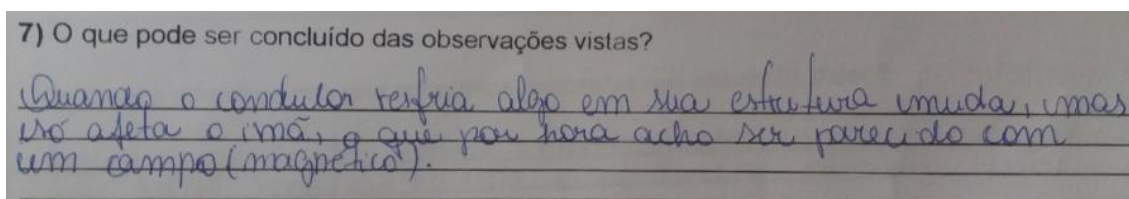 7) O que pode ser concluído das observações vistas?
Quando o condutor resfria algo em sua estrutura muda, mas
só afeta o imã, o que por hora acho ser parecido com
um campo (magnético).